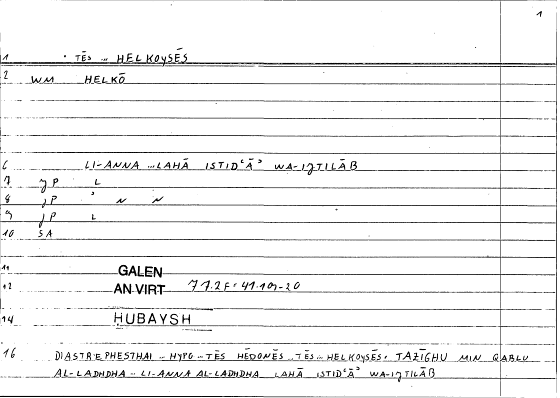 1
1 · TĒS .. HELKOYSĒS
2 WM HELKŌ
6 LI-ANNA .. LAHĀ ISTIDʿĀʾ WA-IJTILĀB
7 JP L
8 JP ʾ N N
9 JP L
10 SA
11 GALEN
12 AN VIRT 71.2F = 41.109-20
14 ḤUBAYSH
16 DIASTREPHESTHAI .. HYPO .. TĒS HĒDONĒS .. TĒS .. HELKOYSĒS · TAZĪGHU MIN QABLU
AL-LADHDHA .. LI-ANNA AL-LADHDHA LAHĀ ISTIDʿĀʾ WA-IJTILĀB